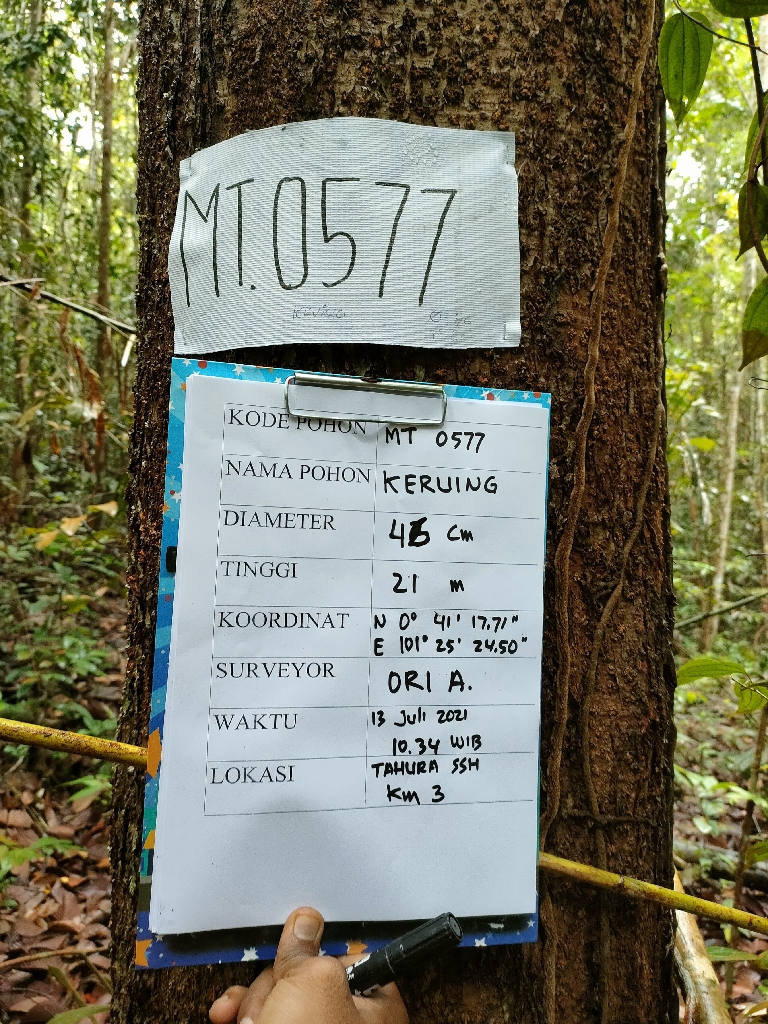 MT.0577
KODE POHON MT 0577
NAMA POHON KERUING
DIAMETER 46 cm
TINGGI 21 m
KOORDINAT N 0° 41' 17.71"
E 101° 25' 24.50"
SURVEYOR ORI A.
WAKTU 13 Juli 2021
10.34 WIB
LOKASI TAHURA SSH
Km 3